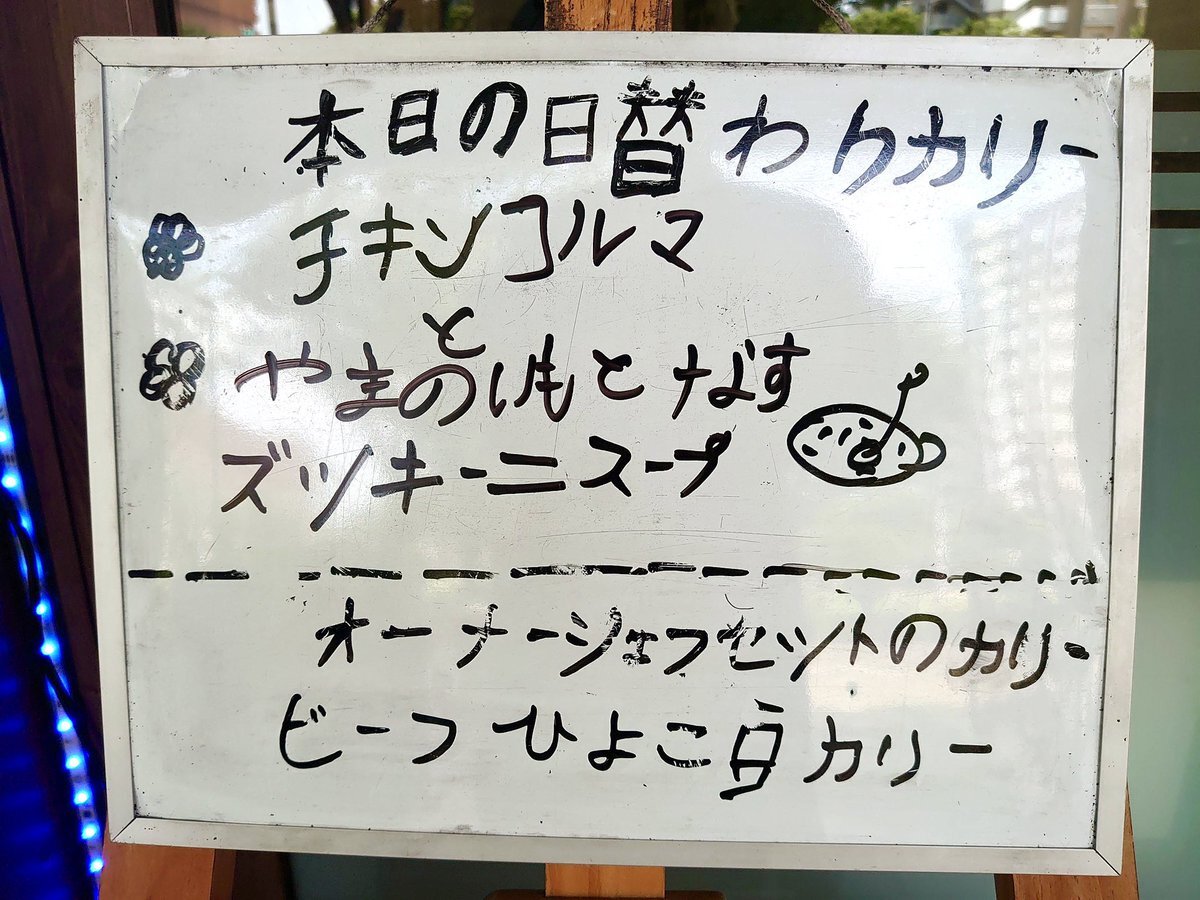 本日の日替わりカリー
チキンコルマ
と
やまのいもとなす
ズッキーニスープ
オーナーシェフセットのカリー
ビーフひよこ豆カリー